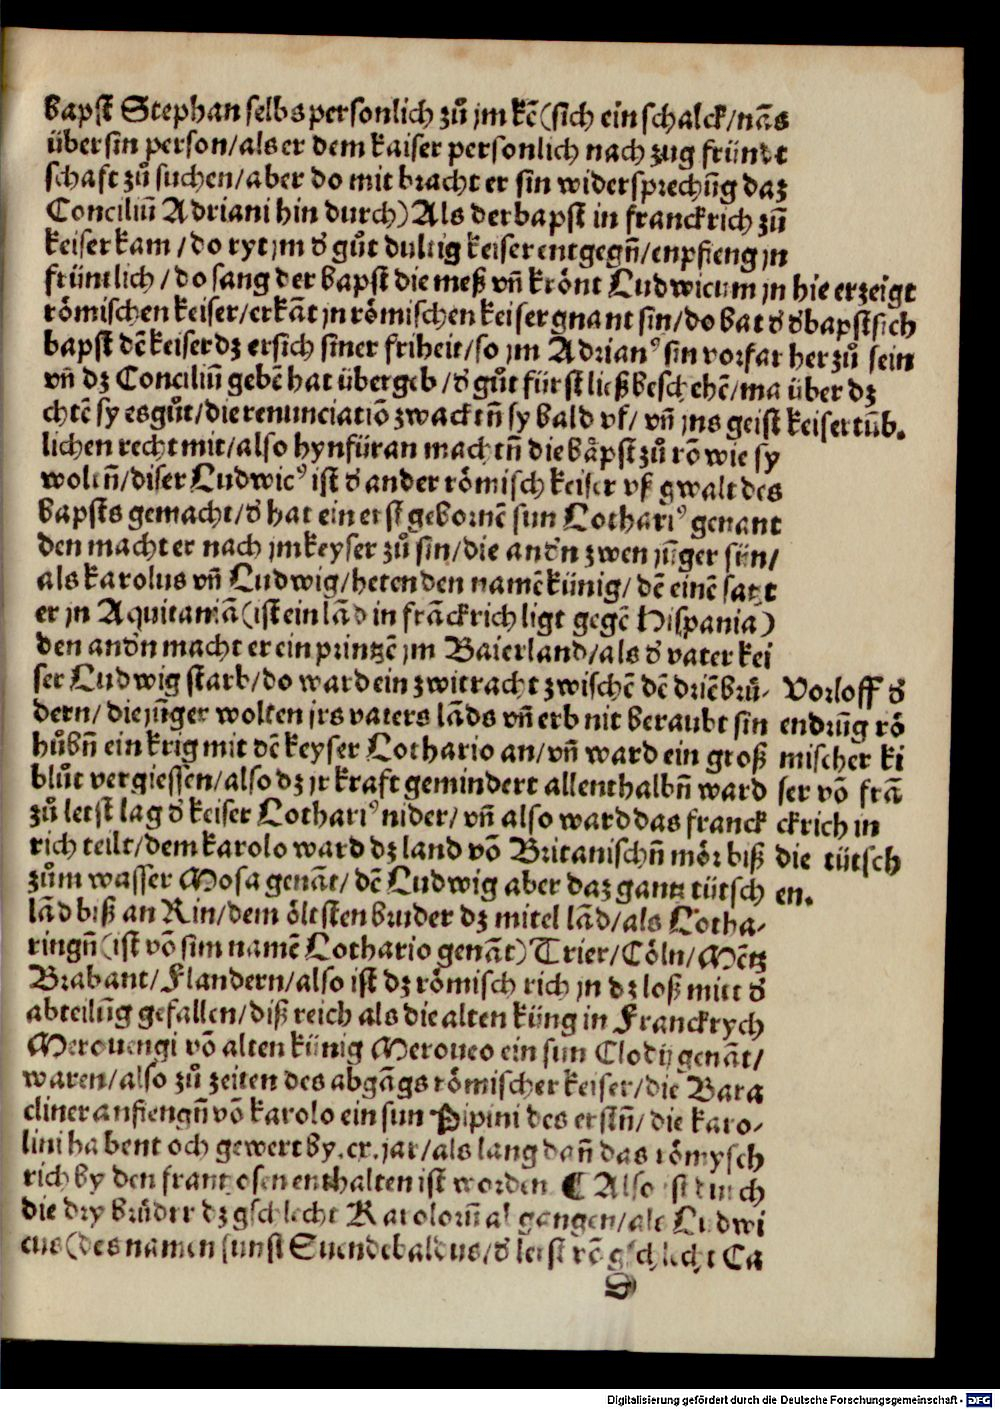 bapst Stephan selbs personlich zů jm kẽ(sich ein schalck/nãs
über sin person/als er dem kaiser personlich nach zug fründt
schaft zů suchen/aber do mit bracht er sin widersprechũg daz
Conciliũ Adriani hin durch) Als der bapst in franckrich zũ
keiser kam/do ryt jm d' gůt dultig keiser entgegñ/enpfieng jn
früntlich/do sang der bapst die meß vñ krönt Ludwicum jn
römischen keiser/erkãt jn römischen keiser gnant sin/do bat d'
bapst dẽ keiser dz er sich siner friheit/so jm Adrianꝰ sin vorfar
vñ dz Conciliũ gebẽ hat übergeb/d' gůt fürst ließ beschehẽ/ma
chtẽ sy es gůt/die renunciatiõ zwacktñ sy bald vf/vñ jns geist
lichen recht mit/also hynfüran machtñ die bäpst zů rõ wie sy
woltñ/diser Ludwicꝰ ist d' ander römisch keiser vß gwalt des
bapsts gemacht/d' hat ein erst gebornẽ sun Lothariꝰ genant
den macht er nach jm keyser zů sin/die and'n zwen jũger sün/
als karolus vñ Ludwig/heten den namẽ künig/dẽ einẽ satzt
er jn Aquitaniã(ist ein lãd in frãckrich ligt gegẽ Hispania)
den and'n macht er ein printzẽ jm Baierland/als d' vater kei
ser Ludwig starb/do ward ein zwitracht zwischẽ dẽ driẽ brü-
dern/die jũger wolten jrs vaters lãds vñ erb nit beraubt sin
hůbñ ein krig mit dẽ keyser Lothario an/vñ ward ein groß
blůt vergiessen/also dz jr kraft gemindert allenthalbñ ward
zů letst lag d' keiser Lothariꝰ nider/vñ also ward das franck
rich teilt/dem karolo ward dz land võ Britanischñ mör biß
zům wasser Mosa genãt/dẽ Ludwig aber daz gantz tütsch
lãd biß an Rin/dem öltsten bruder dz mitel lãd/als Lotha-
ringñ(ist võ sim namẽ Lothario genãt)Trier/Cöln/Mẽtz
Brabant/Flandern/also ist dz römisch rich jn dz loß mitt d'
abteilũg gefallen/diß reich als die alten küng in Franckrych
Merouengi võ alten künig Meroueo ein sun Clodij genãt/
waren/also zů zeiten des abgãgs römischer keiser/die Bara
cliner anfiengñ võ karolo ein sun Pipini des erstñ/die karo-
lini habent och gewert by.cx.jar/als lang dañ das römysch
rich by den frantzosen enthalten ist worden ¶ Also ist durch
die dry brüder dz gschlecht Karolorũ abgangen/als Ludwi
cus(des namen sunst Suendebaldus/d' letst võ gschlecht Ca
D
hie erzeigt
d' bapst sich
her zů sein
über dz
keisertũb.
Vorloff d'
endrũg rö
mischer ki
ser võ frã
ckrich in
die tütsch
en.
Digitalisierung gefördert durch die Deutsche Forschungsgemeinschaft - DFG